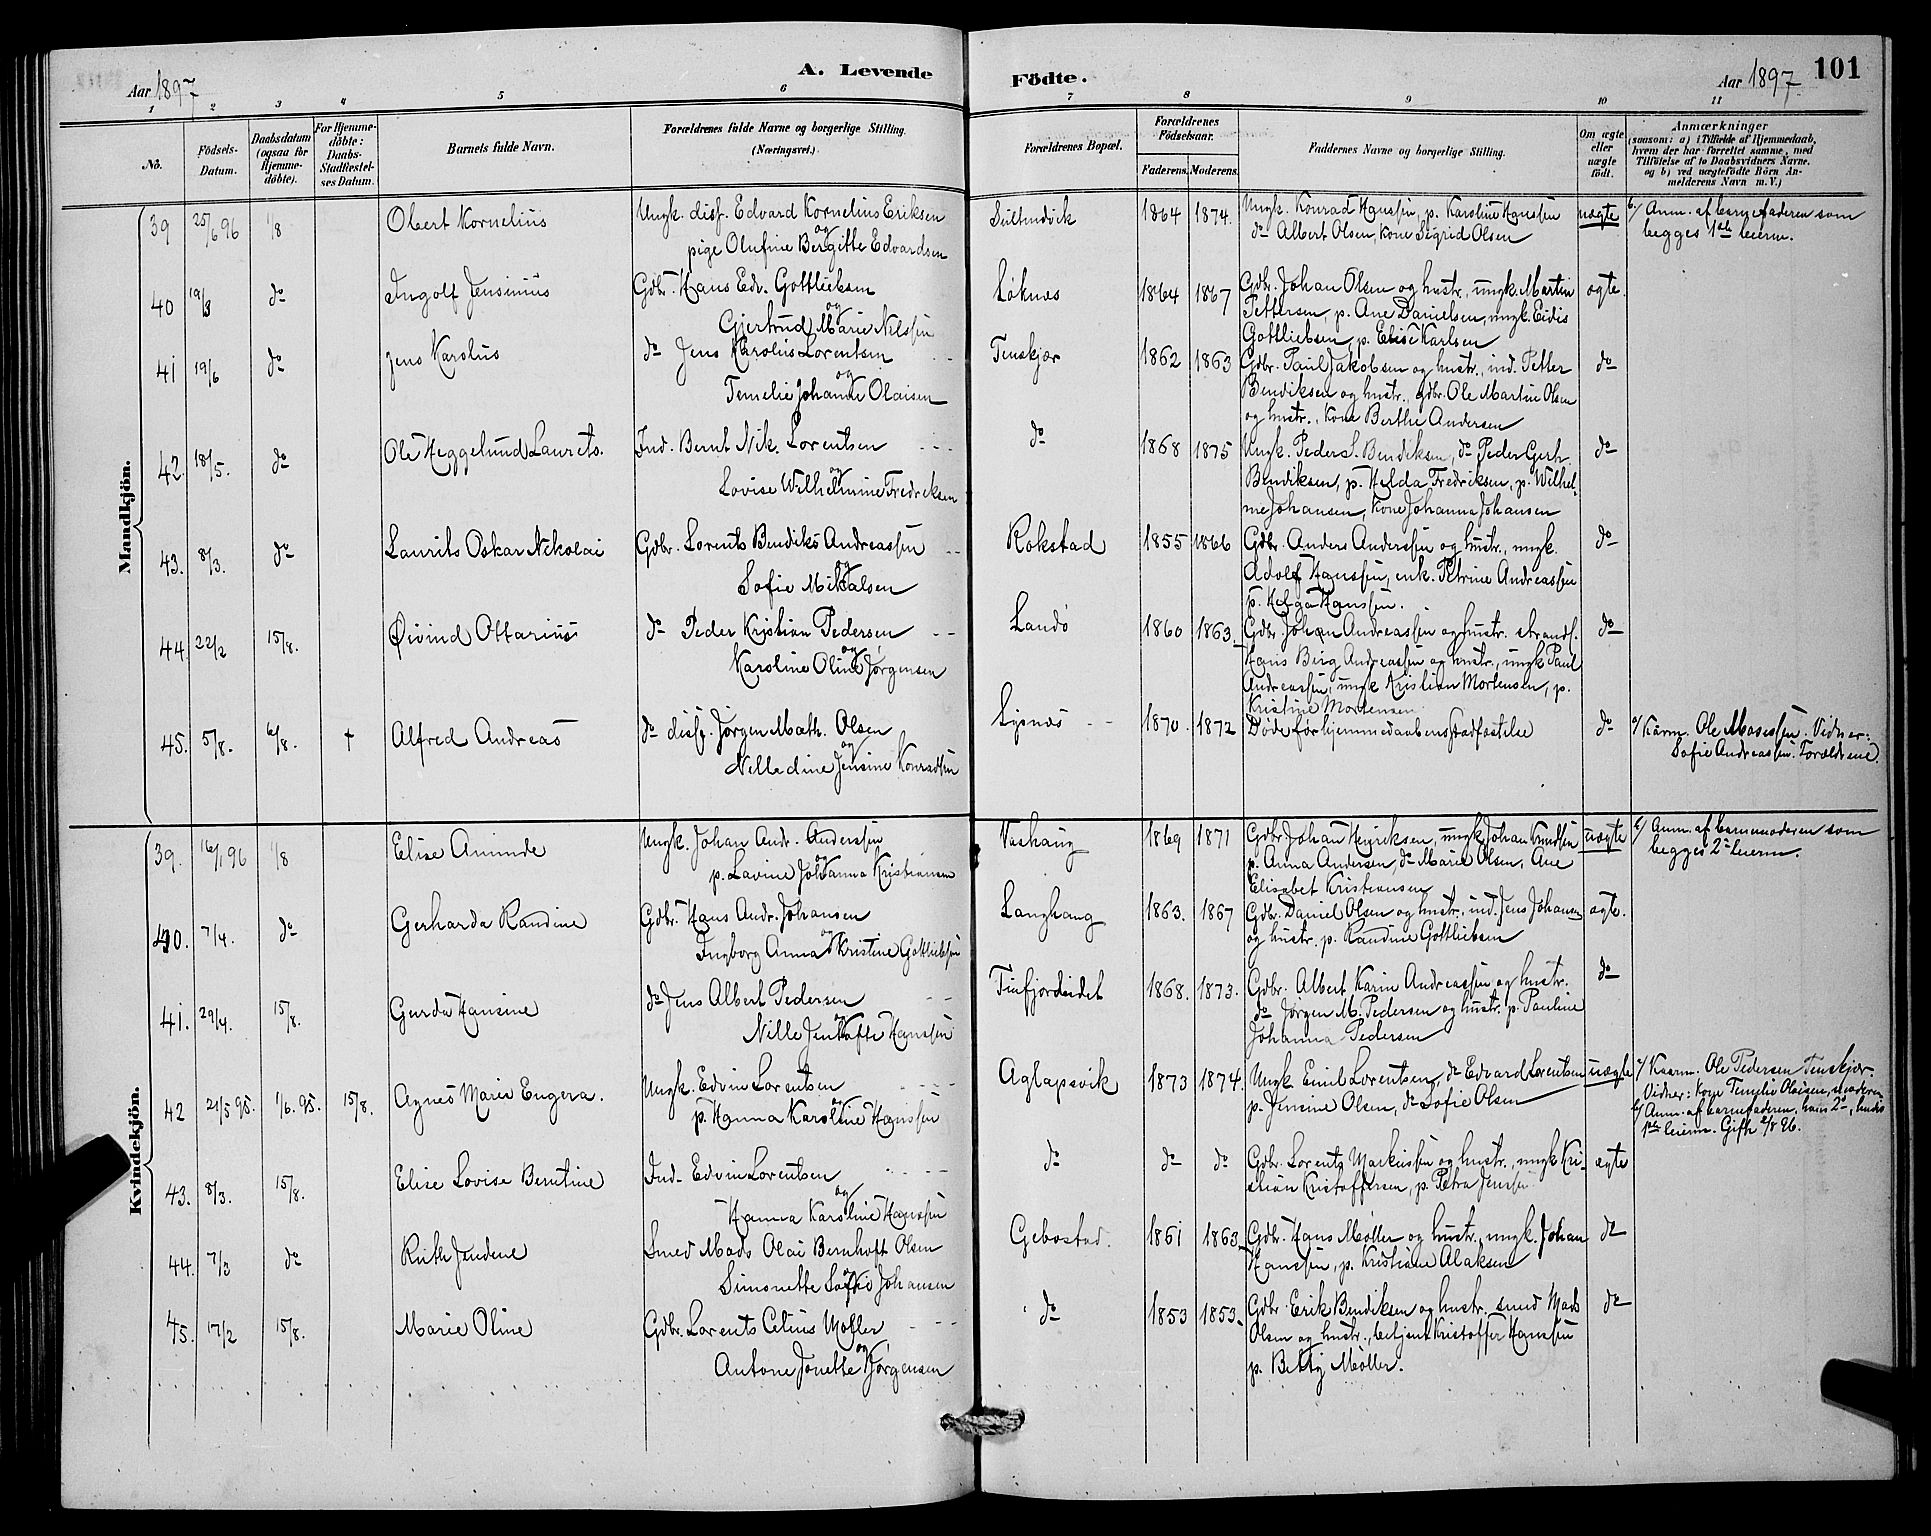 Aar 1897
A. Levende
Födte.
Aar 1897
101
1 2 3 4 5 6 7 8 9 10 11
No.
Födsels-Datum.
Daabsdatum (ogsaa for Hjemme-döbte).
For Hjemme-döbte: Daabs-Stadfæstel-ses Datum.
Barnets fulde Navn.
Forældrenes fulde Navne og borgerlige Stilling. (Næringsvei.)
Forældrenes Bopæl.
Forældrenes Födselsaar.
Faderens. Moderens.
Faddernes Navne og borgerlige Stilling.
Om ægte eller uægte födt.
Anmærkninger
(saasom: a) i Tilfælde af Hjemmedaab,
hvem der har forrettet samme, med
Tilföielse af to Daabsvidners Navne.
og b) ved uægtefödte Börn An-
melderens Navn m. V.)
Mandkjön.
39 25/6 96 1/8 Obert Kornelius
Ungk. disp. Edvard Kornelius Eriksen
og
pige Olufine Bergitte Edvardsen
1864 1874.
Ungk. Konrad Hanssen, p. Karoline Hanssen
do Albert Olsen, kone Sigrid Olsen
uægte
b/ Anm. af barnefaderen som
begges 1ste leierm.
40 19/3 do Ingolf Jensinius
Gdbr. Hans Edv. Gottliebsen
og
Gjertrud Marie Nilssen
Løknes 1864 1867
Gdbr. Johan Olsen og hustr., ungk. Martin
Pettersen, p. Ane Danielsen, ungk. Eidis
Gottliebsen, p. Elise Karlsen
ægte.
41 19/6 do Jens Karolius
do Jens Karolius Lorentsen
og
Temelie Johanne Olaisen
Tenskjær 1862 1863
Gdbr. Paul Jakobsen og hustr., ind. Petter
Bendiksen og hustr., gdbr. Ole Martin Olsen
og hustr., kone Berthe Andersen
do
42. 18/5. do Ole Heggelund Laurits.
Ind. Bernt Nik. Lorentsen
og
Lovise Wilhelmine Fredriksen
do 1868 1875
Ungk. Peder S. Bendiksen, do Peder Gerh.
Bendiksen, p. Helda Fredriksen, p. Wilhel-
me Johansen, kone Johanna Johansen
do
43. 8/3. do Laurits Oskar Nikolai
Gdbr. Lorents Bendiks Andreassen
og
Sofie Mikalsen
Rokstad 1855 1866
Gdbr. Anders Anderssen og hustr., ungk.
Adolf Hanssen, enk. Petrine Andreassen
p. Helga Hanssen.
do
44. 22/2 15/8. Øivind Ottarius
do Peder Kristian Pedersen
og
Karoline Oline Jørgensen
Landø 1860 1863.
Gdbr. Johan Andreassen og hustr. strands.
Hans Berg Andreassen og hustr., ungk Paul
Andreassen, ungk Kristian Mortensen, p.
Kristine Mortensen
do
45. 5/8. 6/8. † Alfred Andreas
do disp. Jørgen Math. Olsen
og
Nilledine Jensine Konradsen
Lysnes 1870. 1872
Døde før hjemmedaabens stadfæstelse
do
a/ Kärm. Ole Mosessen. Vidner:
Sofie Andreassen. Forældrene.
Kvindekjön.
39. 16/1 96 1/8 Elise Aminde
Ungk. Johan Andr. Anderssen
og
p. Lavine Johanna Kristiansen
Vashaug 1869 1871
Gdbr. Johan Henriksen, ungk Johan Knudsen
p. Anna Andersen, do Marie Olsen, Ane
Elisabet Kristiansen
uægte
b/ Anm. af barnemoderen som
begges 2det leierm.
40. 7/4. do Gerharda Randine
Gdbr. Hans Andr. Johansen
og
Ingborg Anna Kristine Gottliebsen
Langhaug 1863. 1867
Gdbr. Daniel Olsen og hustr., ind. Jens Johansen
og hustr. p. Randine Gottliebsen
ægte.
41. 29/4. 15/8. Gerda Hansine
do Jens Albert Pedersen
og
Nille Jentofte Hanssen
Tinfjordeidet 1868. 1873.
Gdbr. Albert Karin Andreassen og hustr.
do Jørgen M. Pedersen og hustr. p. Pauline
Johanna Pedersen
do
42 21/5 95. 1/6. 95. 15/8. Agnes Marie Eugera.
Ungk. Edvin Lorentsen
og
p. Hanna Karoline Hanssen
Aglapsvik 1873 1874.
Ungk Emil Lorentsen, do Edvard Lorentsen
p. Jensine Olsen, do Sofie Olsen
uægte
a/ Kaarm. Ole Pedersen Tenskjær.
Vidner: kone Temelie Olaisen, moderen
b/ Anm. af barnefaderen, hans 2det, hendes
1ste leierm. Gift 96.
43. 8/3. 15/8. Elise Lovise Berntine
Ind. Edvin Lorentsen
og
Hanna Karoline Hanssen
do do do
Gdbr. Lorents Markussen og hustr., ungk Kri-
stian Kristoffersen, p. Petra Jenssen
ægte
44. 7/3 do Ruth Jendine
Smed Mads Olai Bernhoft Olsen
og
Simonette Sofie Johansen
Gebostad. 1861 1863
Gdbr. Hans Møller og hustr., ungk. Johan
Hanssen, p. Kristiane Alaksen
do
45. 17/2 15/8. Marie Oline
Gdbr. Lorents Celius Møller
og
Antone Jonette Jørgensen
do 1853 1853.
Gdbr. Erik Bendiksen og hustr. smed Mads
Olsen og hustr., betjent Kristoffer Hanssen
p. Betty Møller.
do